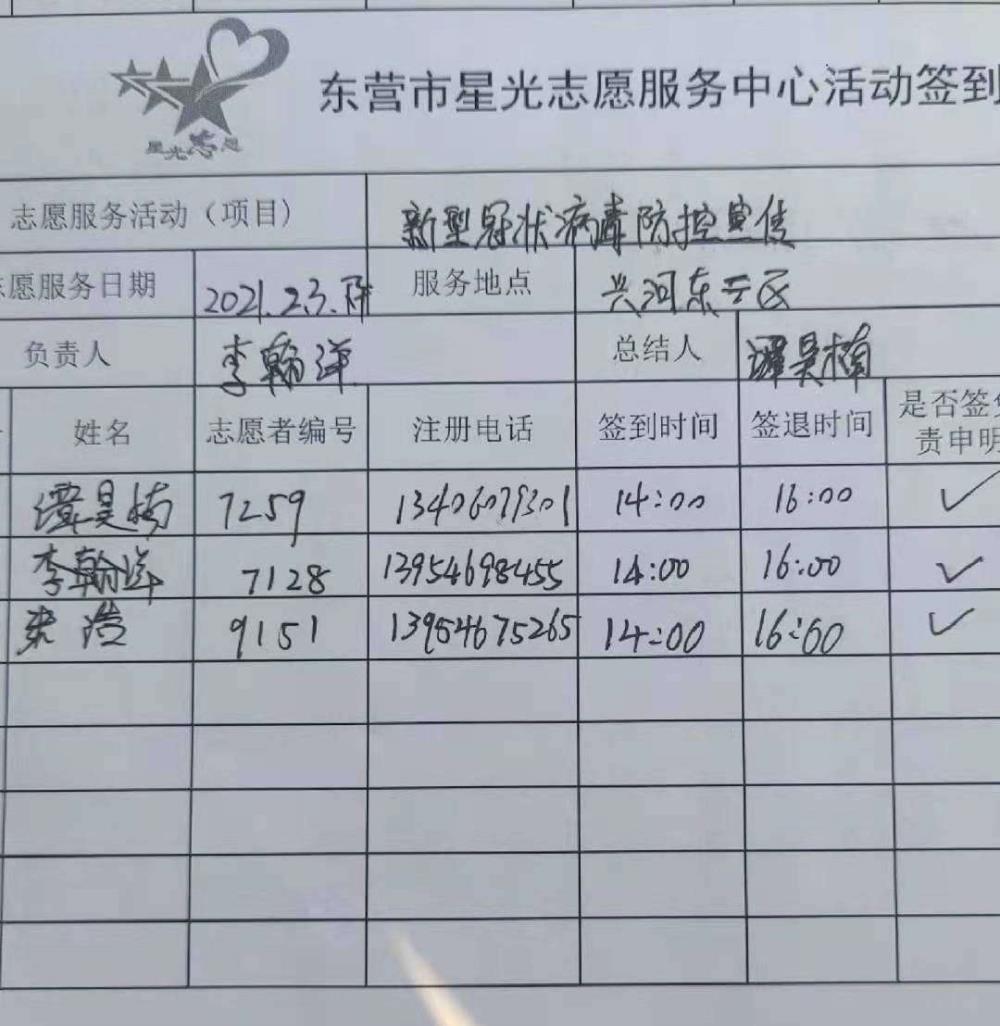 星光志愿
东营市星光志愿服务中心活动签到
志愿服务活动（项目） 新型冠状病毒防控宣传
志愿服务日期 2021.2.3.下午 服务地点 兴河东三区
负责人 李翰洋 总结人 谭昊楠
姓名 志愿者编号 注册电话 签到时间 签退时间 是否签
责申明
谭昊楠 7259 13406079301 14:00 16:00 ✓
李翰洋 7128 13954698455 14:00 16:00 ✓
宋浩 9151 13954675265 14:00 16:00 ✓